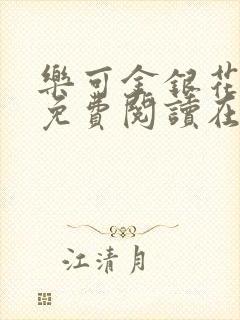 樂可金銀花
免費閱讀在
江清月